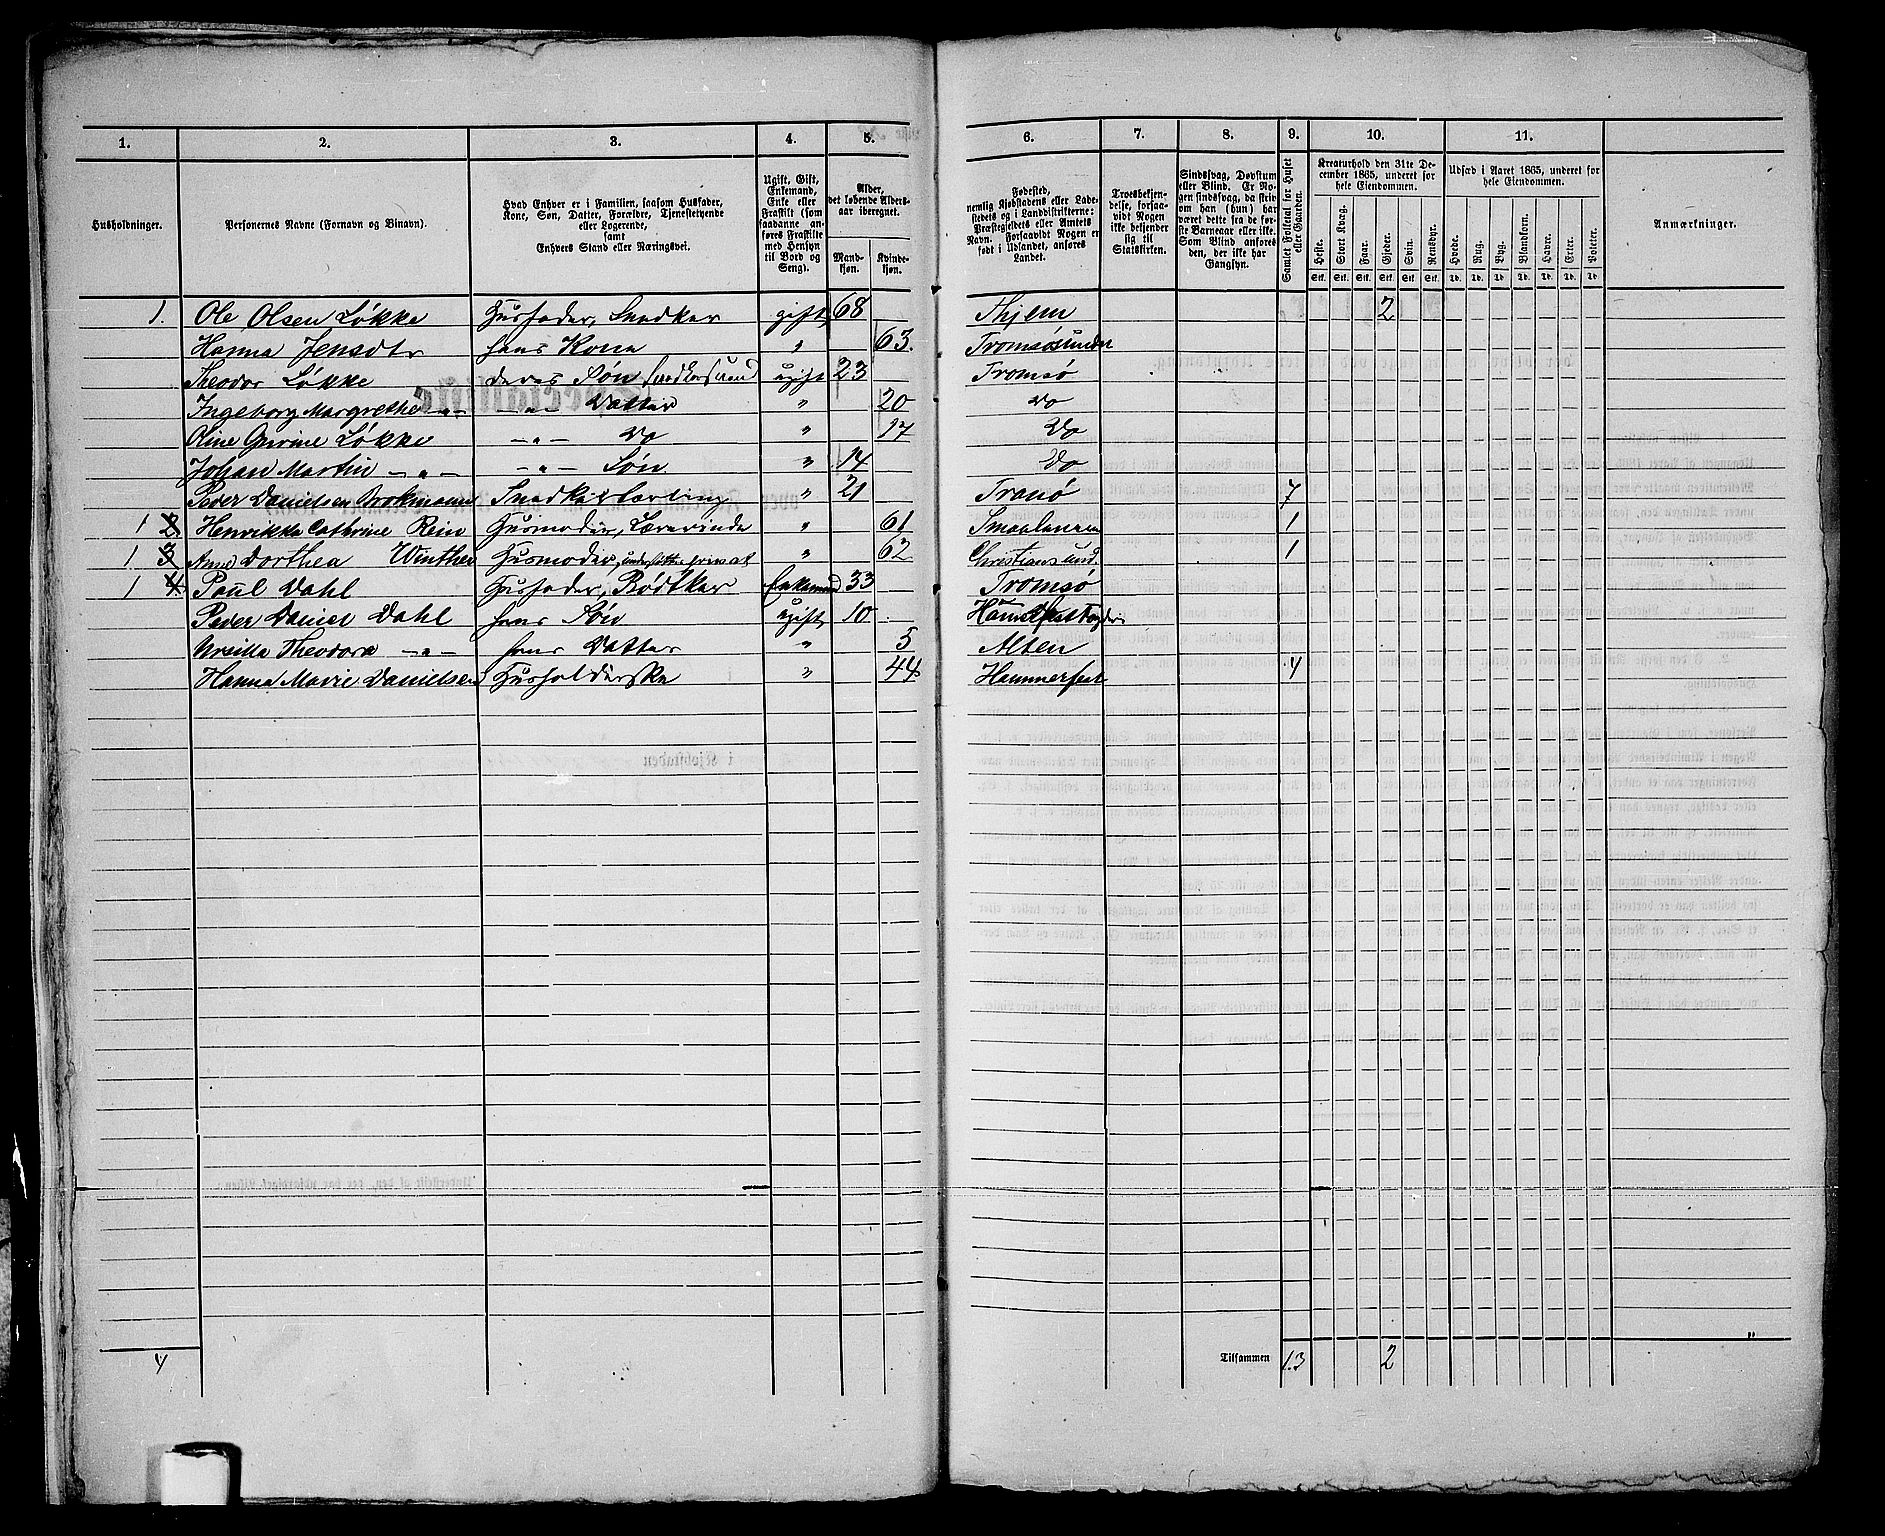 1. 2. 3. 4. 5. 6. 7. 8. 9. 10. 11.
Husholdninger.
Personernes Navne (Fornavn og Binavn).
Hvad Enhver er i Familien, saasom Husfader,
Kone, Søn, Datter, Forældre, Tjenestetyende
eller Logerende,
samt
Enhvers Stand eller Næringsvei.
Ugift, Gift,
Enkemand,
Enke eller
Fraskilt (som
saadanne an-
føres Fraskilte
med Hensyn
til Bord og
Seng).
Alder,
det løbende Alders-
aar iberegnet.
Mand-
kjøn.
Kvinde-
kjøn.
Fødested,
nemlig Kjøbstadens eller Lade-
stedets og i Landdistrikterne:
Præstegjeldets eller Amtets
Navn. Forsaavidt Nogen er
født i Udlandet, anføres
Landet.
Troesbekjen-
delse, forsaa-
vidt Nogen
ikke bekjender
sig til
Statskirken.
Sindssvag, Døvstum
eller Blind. Er No-
gen sindssvag, da skriv
om han (hun) har
været dette fra de før-
ste Barneaar eller ikke.
Som Blind anføres
den, der ikke har
Gangsyn.
Samlet Folketal for Huset
eller Gaarden.
Kreaturhold den 31te De-
cember 1865, underet for
hele Eiendommen.
Heste. Stort Kvæg. Faar. Gjeder. Svin. Rensdyr.
Stk. Stk. Stk. Stk. Stk. Stk.
Udsæd i Aaret 1865, underet for
hele Eiendommen.
Hvede. Rug. Byg. Blandkorn. Havre. Erter. Poteter.
Td. Td. Td. Td. Td. Td. Td.
Anmærkninger.
1. Ole Olsen Løkke Husfader, Snedker gift 68 2
Hanna Jensdtr hans Kone " 63. Tromsøsundet
Theodor Løkke deres Søn ugift 23 Tromsø
Ingeborg Margrethe -"- -"- Datter " 20 do
Oline Løkke -"- Do " 17 Do
Johan Martin -"- -"- Søn " 14 Do
Peder Danielsen Brokmann Snedkerlærling " 21 Tranø 7
1 2 Henrikka Cathrine Rein Husmoder, Lærerinde " 61 Smaalenene 1
1 3 Anne Dorthea Winther Husmoder, understøttes privat " 62 Christianssund. 1
1 4 Paul Dahl Husfader, Bødtker Enkemand 33 Tromsø
Peder Daniel Dahl hans Søn ugift 10
Ursilla Theodora -"- hans Datter " 5 Alten
Hanna Marie Danielsen Husholderske " 44 Hammerfest 4
4 Tilsammen 13 2 "